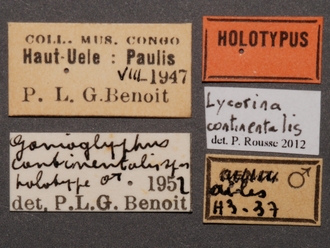 COLL. MUS. CONGO
Haut-Uele : Paulis
VIII-1947
P. L. G. Benoit
HOLOTYPUS
Lycorina
continentalis
det. P. Rousse 2012
Gonioglyphus
continentalis sp.
holotype ♂ 1952
det. P.L.G. Benoit
♂
H3-37